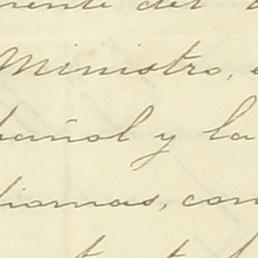 mente del
Ministro,
pañol y la
diomas, con